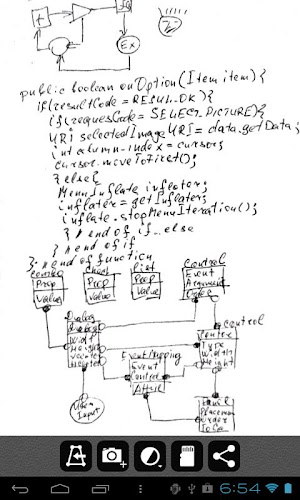 Ex
public boolean onOption(Item item){
if(resultCode = RESUL.OK){
if(requesCode = SELECT.PICTURE){
URi selectedImage URI = data.getData;
int column-index = cursor;
cursor.moveToFirst();
} else{
MenuInflate inflator;
inflater = getInflater;
inflate.stopMenuIteration();
} # end of if...else
} # end of if
}; # end of function
Prop
Value
Prop
Value
list
Prop
Value
Control
Event
Argument
control
Dialog
Width
Height
Event Mapping
Event
Control
Type
Width
Height
User
Input
Placemen
6:54